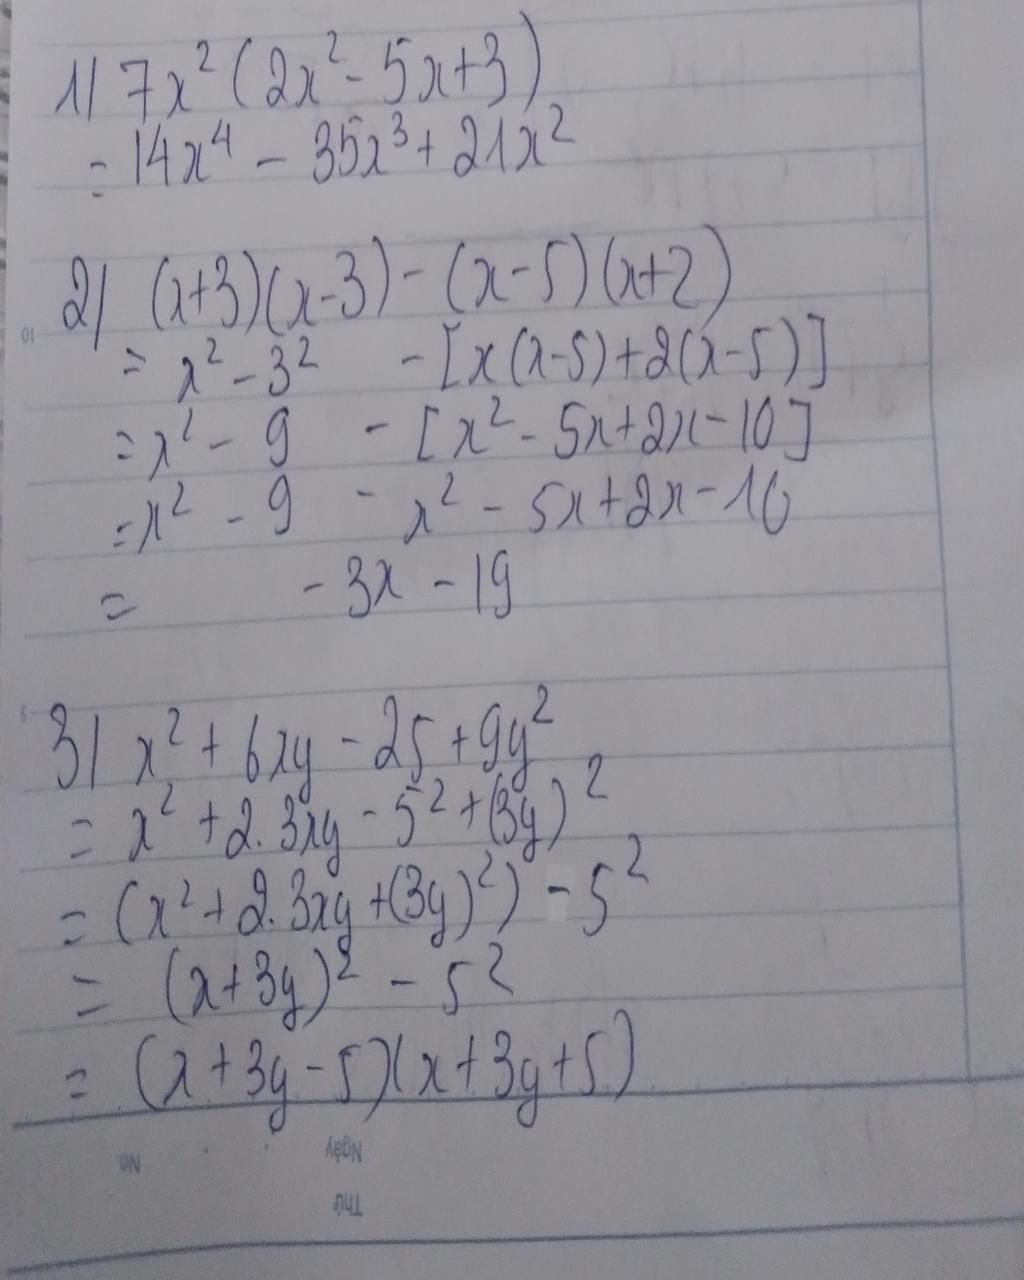 1) 7x² (2x² - 5x + 3)
= 14x⁴ - 35x³ + 21x²
2) (x+3)(x-3) - (x-5)(x+2)
= x² - 3² - [x(x-5) + 2(x-5)]
= x² - 9 - [x² - 5x + 2x - 10]
= x² - 9 - x² - 5x + 2x - 10
= - 3x - 19
3) x² + 6xy - 25 + 9y²
= x² + 2.3xy - 5² + (3y)²
= (x² + 2.3xy + (3y)²) - 5²
= (x + 3y)² - 5²
= (x + 3y - 5)(x + 3y + 5)
10
5
No.
Ngày
Thứ